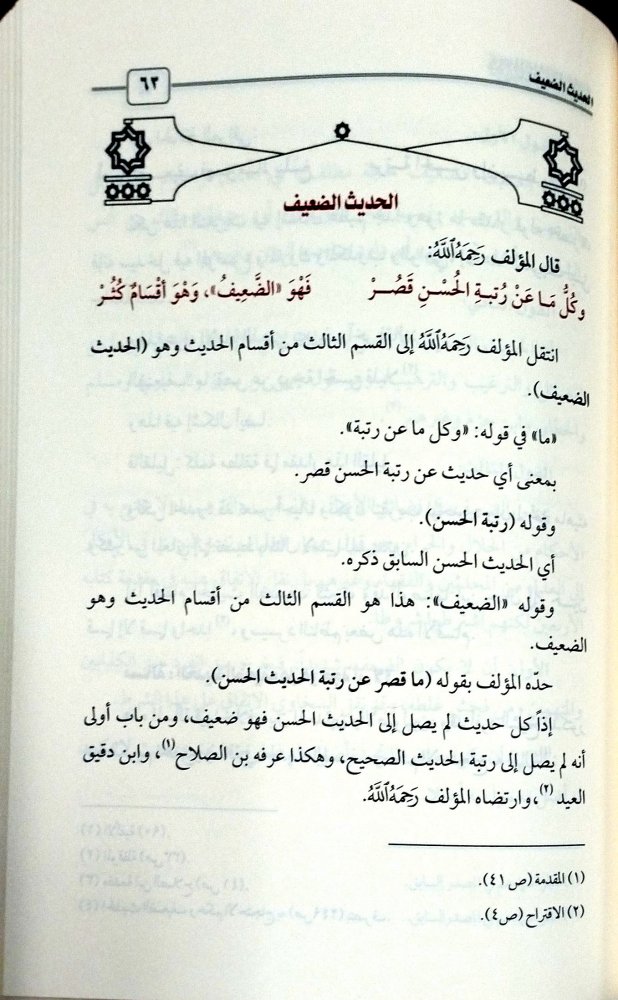 الحديث الضعيف
٦٣
الحديث الضعيف
قال المؤلف رَحِمَهُ اللَّهُ:
وكُلُّ مَا عَنْ رُتبةِ الحُسْنِ قَصُرْ فَهْوَ «الضَّعِيفُ»، وَهْوَ أقْسَامٌ كُثُرْ
انتقل المؤلف رَحِمَهُ اللَّهُ إلى القسم الثالث من أقسام الحديث وهو (الحديث
الضعيف).
«ما» في قوله: «وكل ما عن رتبة».
بمعنى أي حديث عن رتبة الحسن قصر.
وقوله (رتبة الحسن).
أي الحديث الحسن السابق ذكره.
وقوله «الضعيف»: هذا هو القسم الثالث من أقسام الحديث وهو
الضعيف.
حدّه المؤلف بقوله (ما قصر عن رتبة الحديث الحسن).
إذاً كل حديث لم يصل إلى الحديث الحسن فهو ضعيف، ومن باب أولى
أنه لم يصل إلى رتبة الحديث الصحيح، وهكذا عرفه بن الصلاح(١)، وابن دقيق
العيد(٢)، وارتضاه المؤلف رَحِمَهُ اللَّهُ.
(١) المقدمة (ص ٤١).
(٢) الاقتراح (ص٤).